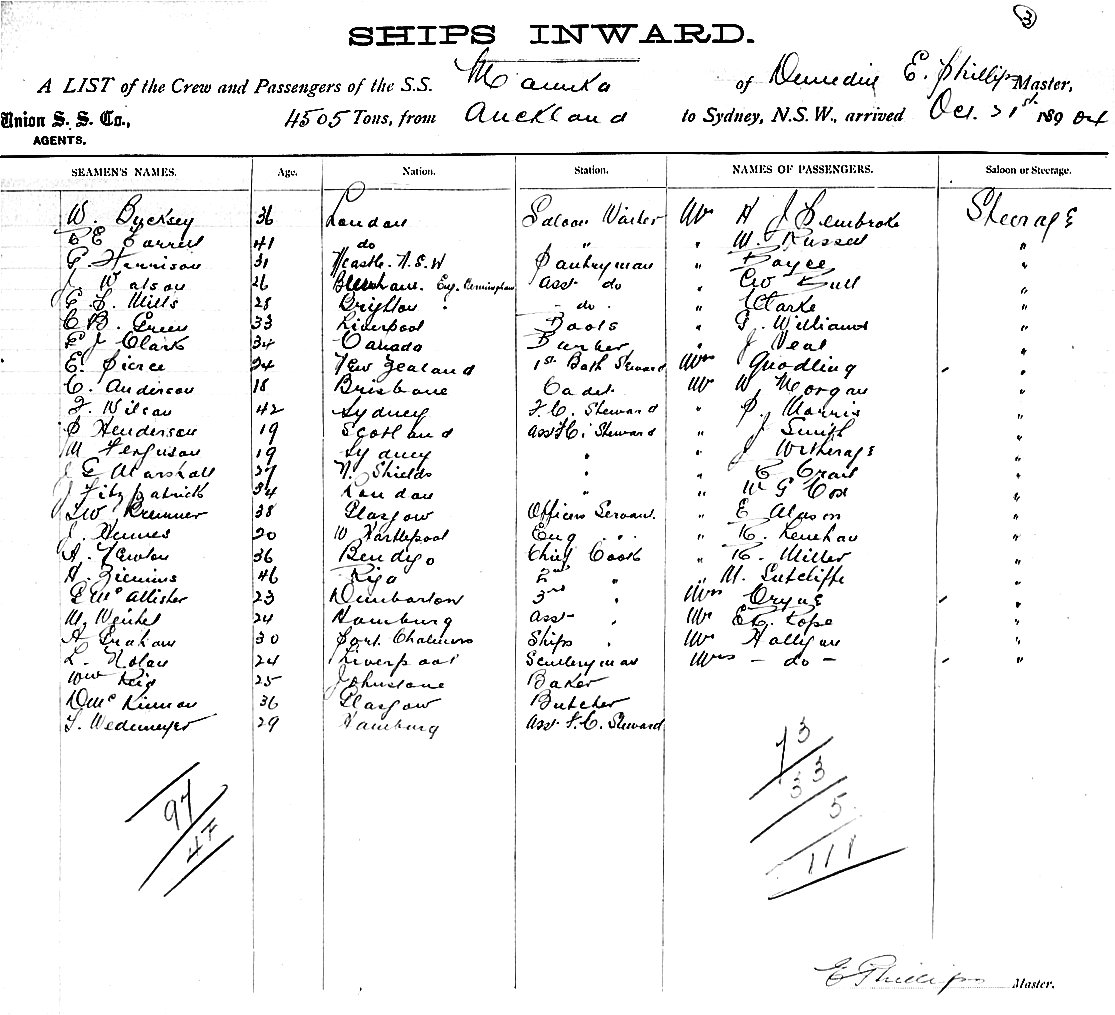 3
SHIPS INWARD.
A LIST of the Crew and Passengers of the S.S. Manuka of Dunedin E. Phillips Master,
Union S. S. Co., 4505 Tons, from Auckland to Sydney, N.S.W., arrived Oct. 31st 1890 04
AGENTS.
SEAMEN'S NAMES. Age. Nation. Station. NAMES OF PASSENGERS. Saloon or Steerage.
W. 36 London Saloon Waiter Mr H J Pembroke Steerage
C E Farrell 41 do " " W. Russell "
Harrison 31 Ncastle. N.S.W Pantryman " Boyce "
J Watson 26 Asst do " Bull "
E. L. Mills 28 Brighton - do - " Clarke "
C B. Green 33 Liverpool Boots " Williams "
E J Clark 34 Canada Barber " J Veal "
E. Pierce 24 New Zealand 1st Bath Steward Mrs Quodling "
C. Anderson 18 Brisbane Cadet Mr W. Morgan "
F. Wilson 42 Sydney F. C. Steward " P. Morris "
P Henderson 19 Scotland Asst F.C. Steward " J Smith "
M Ferguson 19 Sydney " " J "
J E Marshall 27 N. Shields " " C "
J Fitzpatrick 34 London " " W G Cox "
Bremner 38 Glasgow Officers Servant. " E "
J. 20 W Hartlepool Eng " " " R. "
A. Newton 36 Bendigo Chief Cook " R. Miller "
H. 46 Riga 2nd " " M. Sutcliffe "
McAllister 23 Dumbarton 3rd " Mrs "
24 Hamburg Asst " Mr Pope "
A Graham 30 Port Chalmers Ships " Mr Halligan "
L. Nolan 24 Liverpool Sculleryman Mrs - do - "
Wm Reid 25 Johnstone Baker
D McKinnon 36 Glasgow Butcher
Wedemeyer 29 Hamburg Asst F. C. Steward
97
47
73
33
5
111
E Phillips Master.